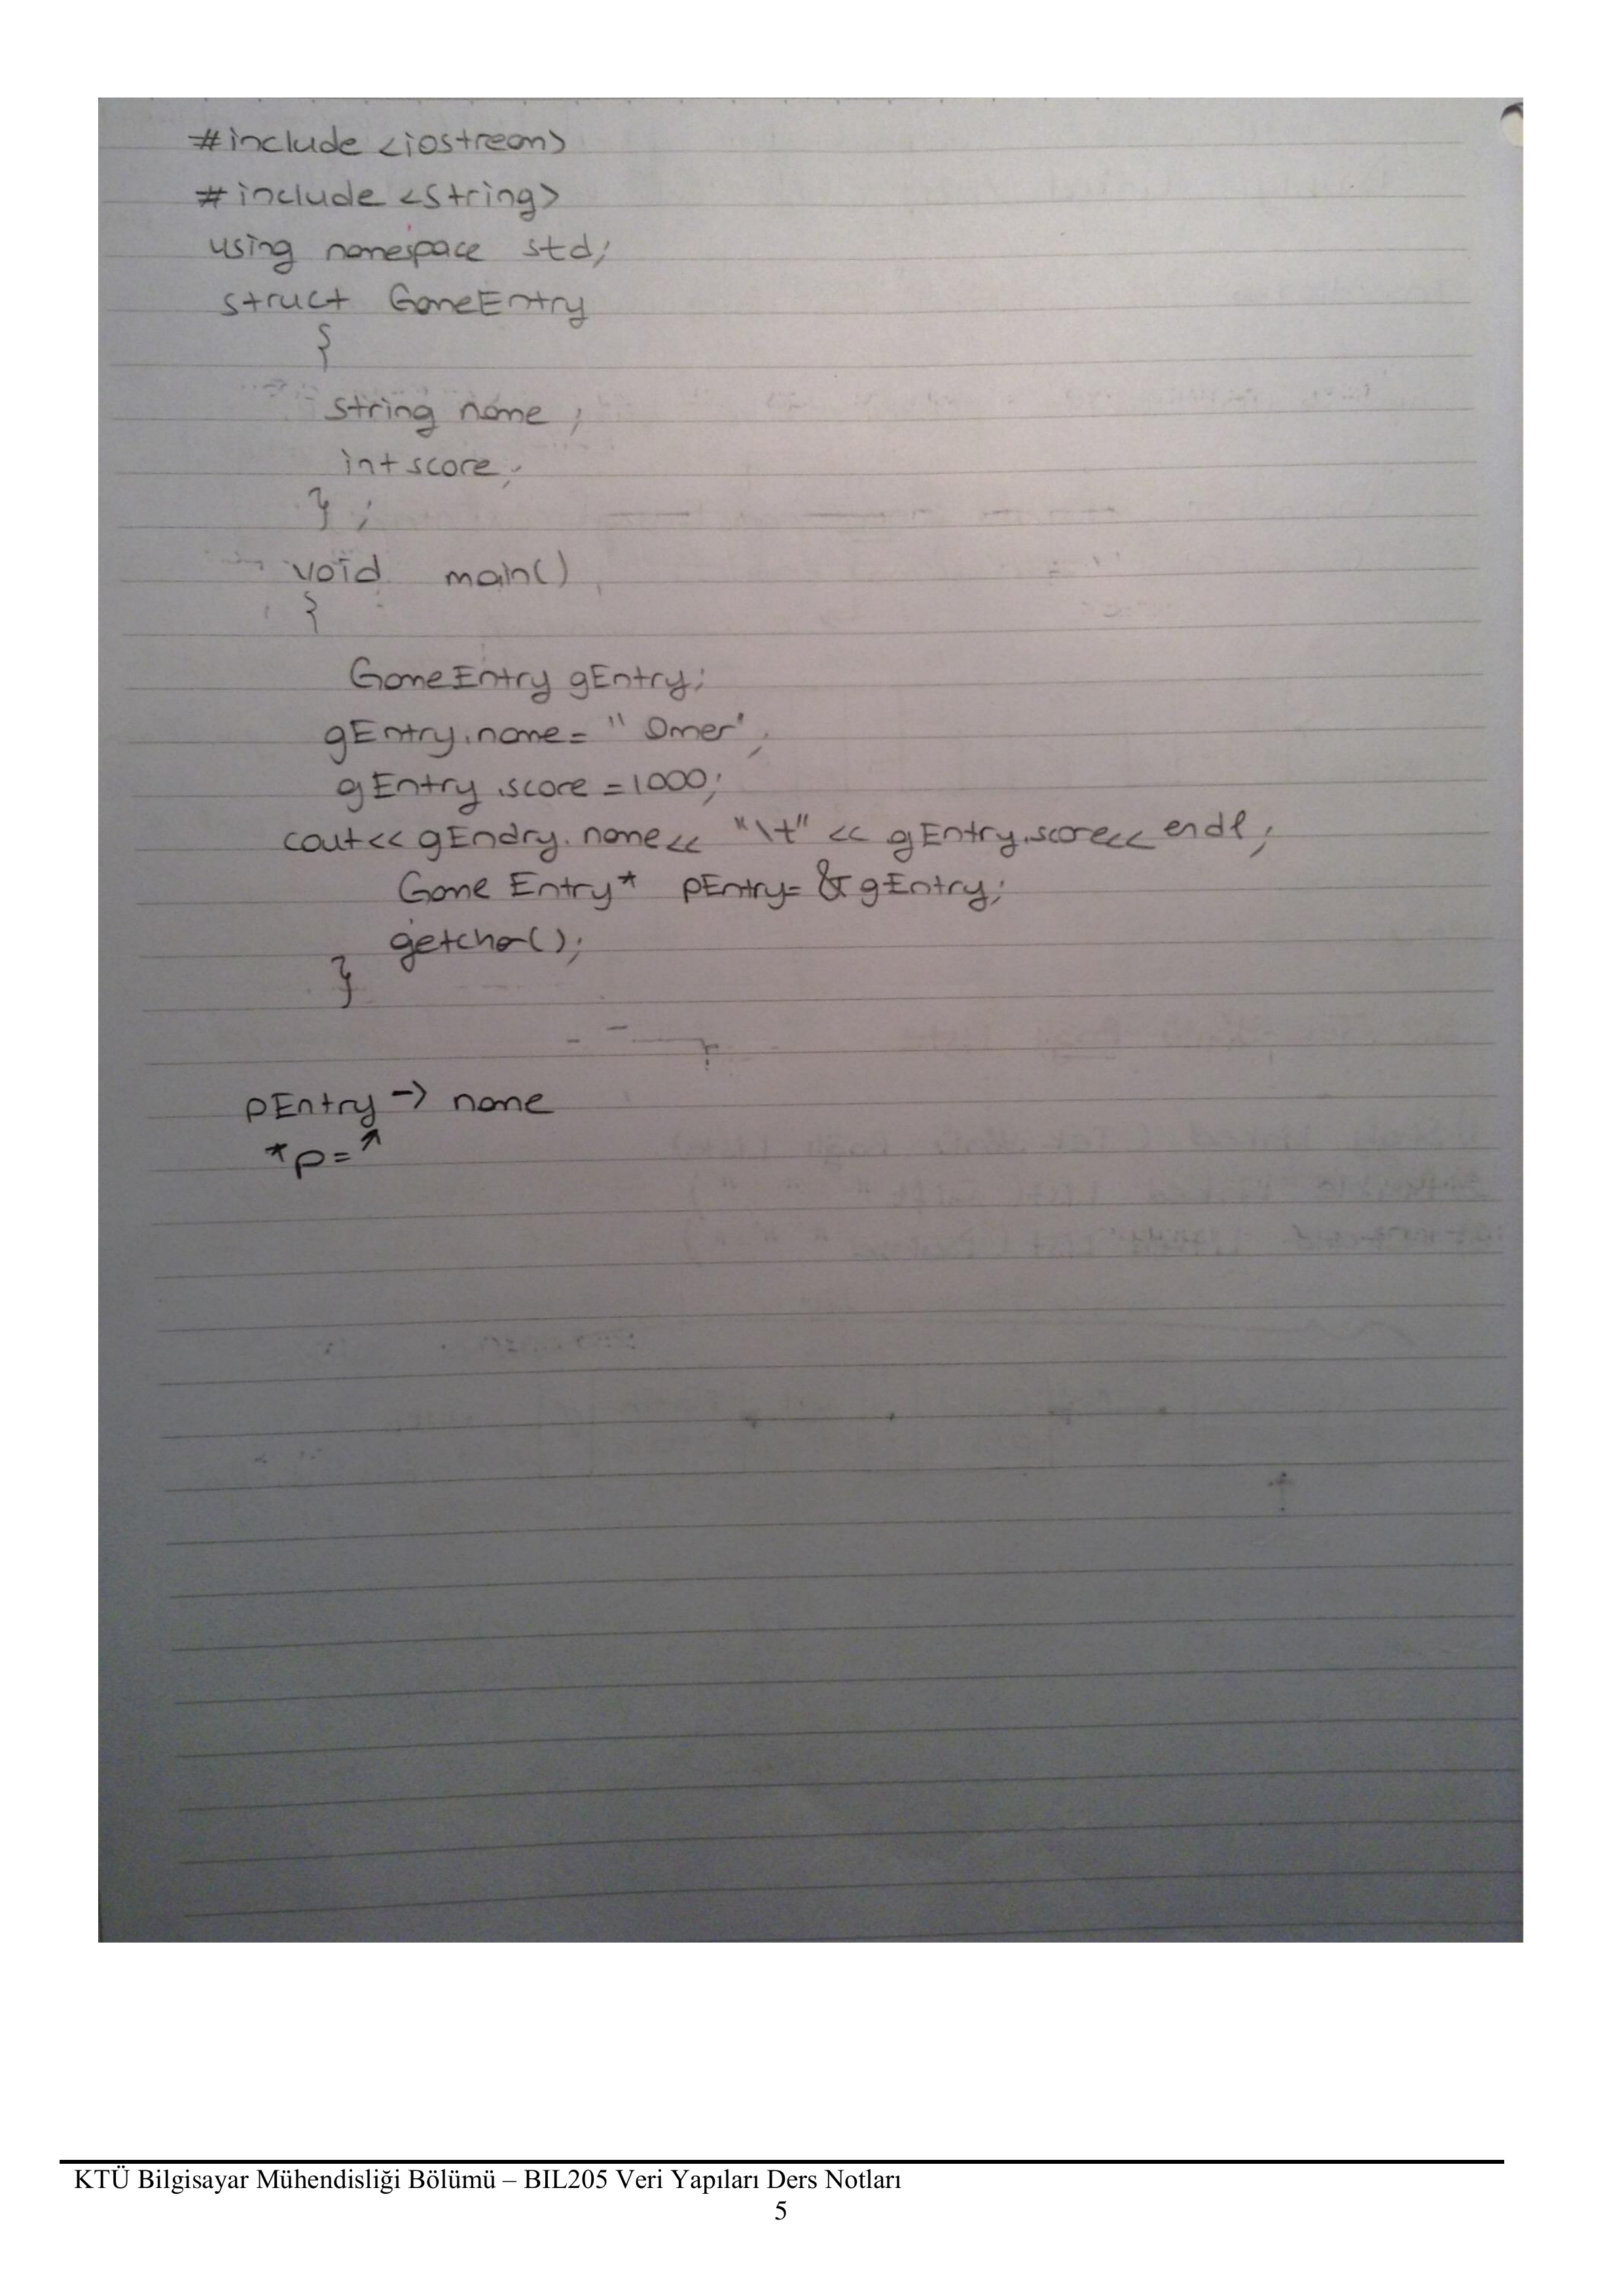 #include <iostream>
#include <string>
using namespace std;
struct GameEntry
{
string name;
int score;
};
void main()
{
GameEntry gEntry;
gEntry.name= "Omer";
gEntry.score =1000;
cout<< gEndry.name<< "\t" << gEntry.score<< endl;
Game Entry* pEntry= &gEntry;
getchar();
}
pEntry -> name
*p=↗
KTÜ Bilgisayar Mühendisliği Bölümü – BIL205 Veri Yapıları Ders Notları
5